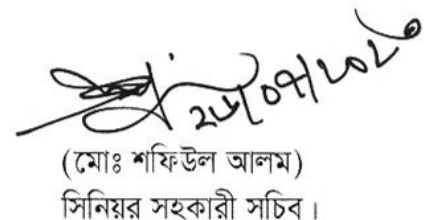 ২৬/০৭/২০২০
(মোঃ শফিউল আলম)
সিনিয়র সহকারী সচিব।